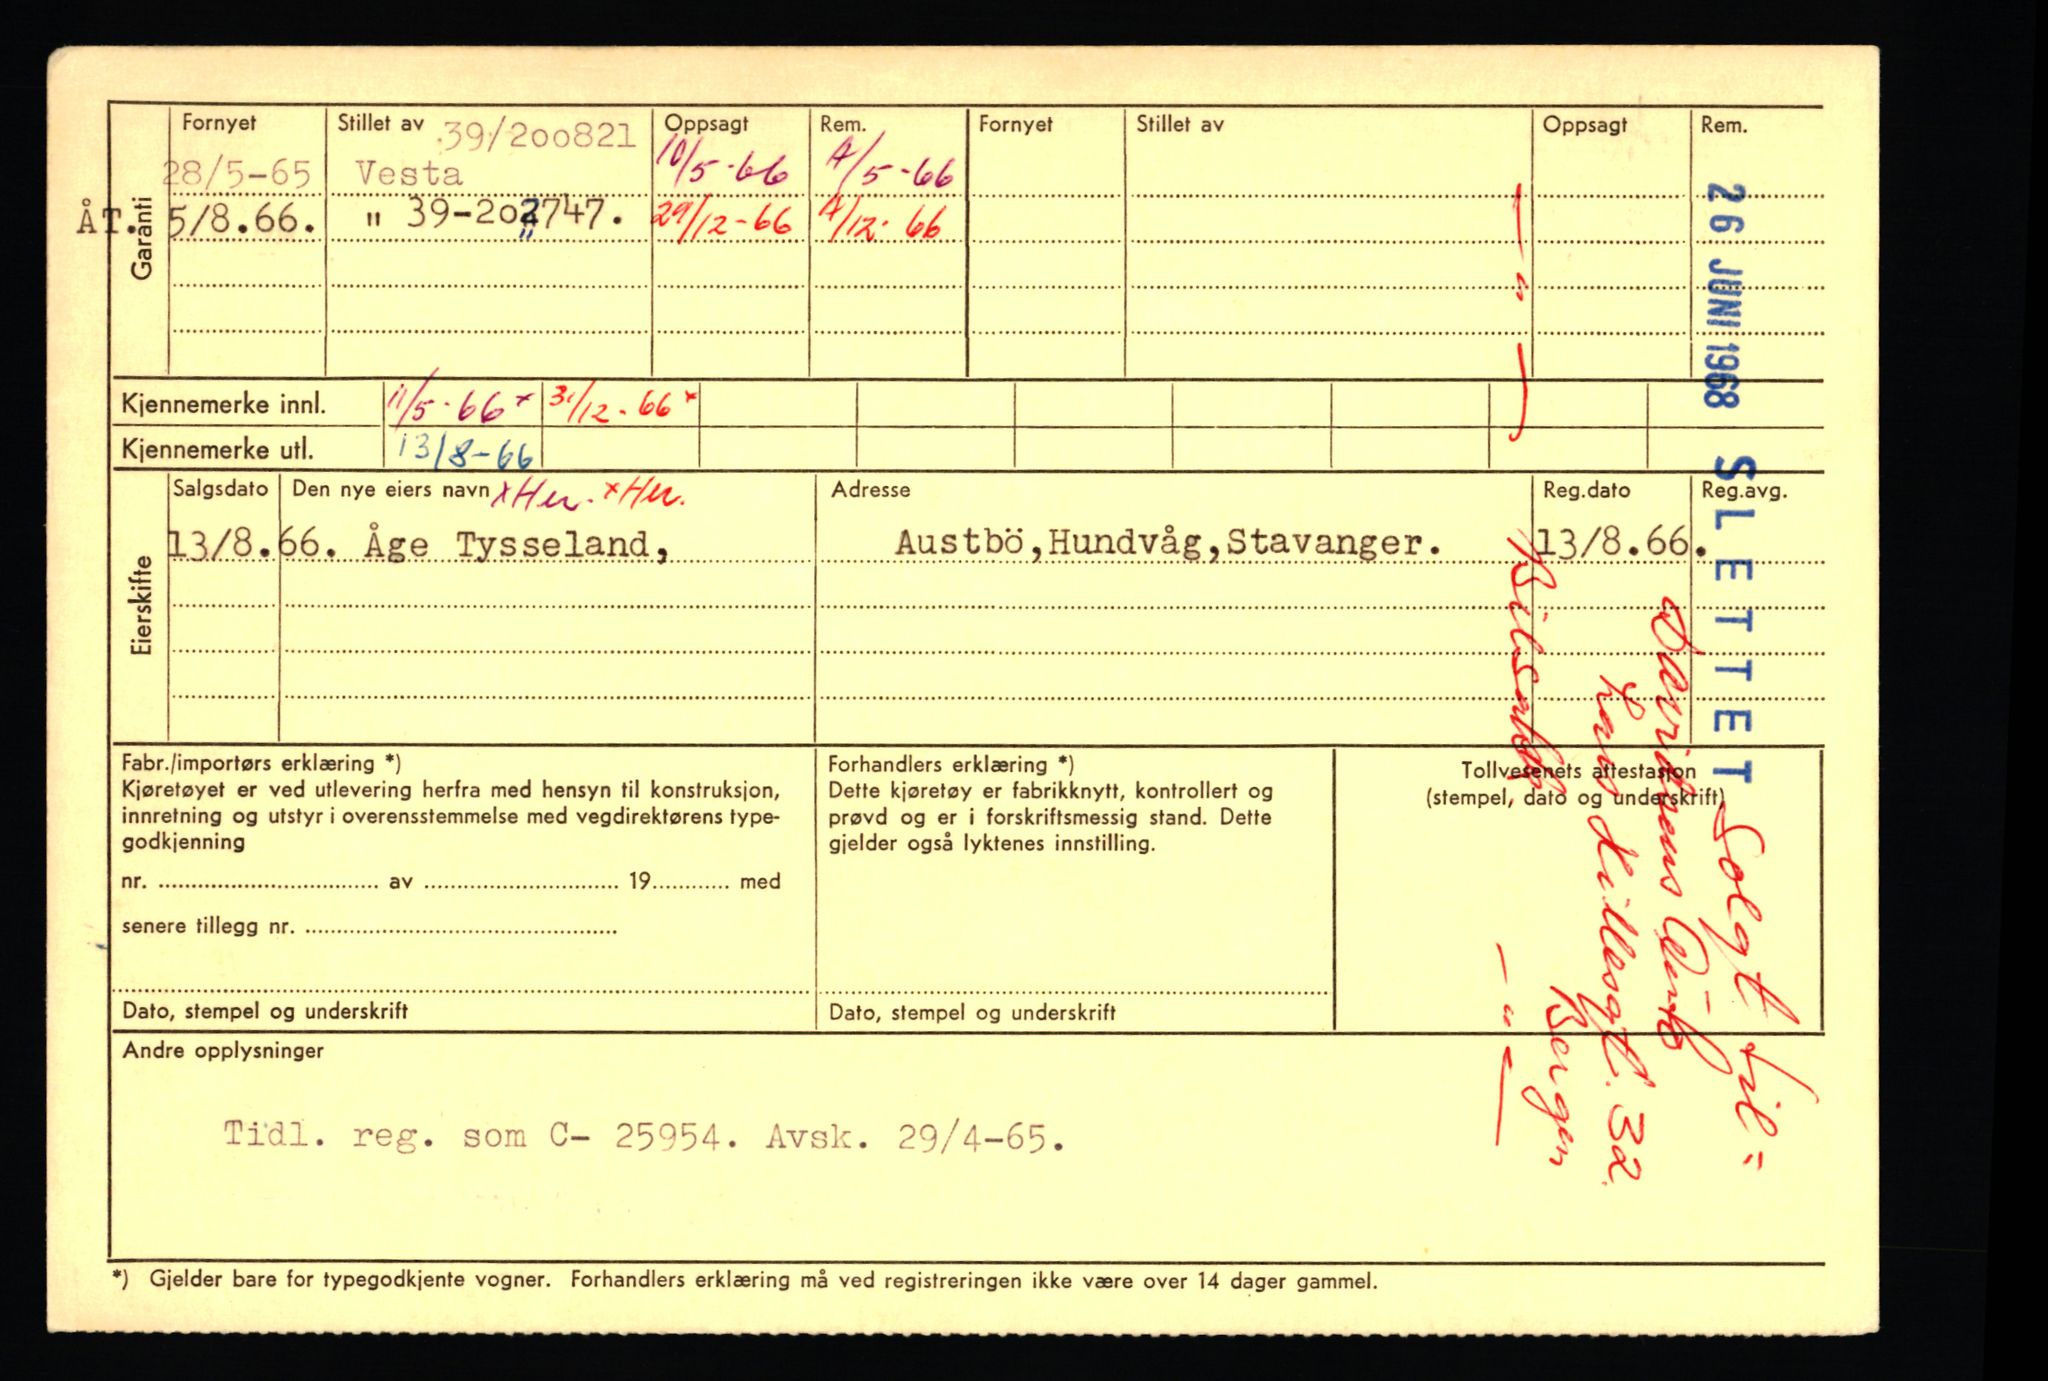 Garanti
Fornyet Stillet av 39/200821 Oppsagt Rem. Fornyet Stillet av Oppsagt Rem.
28/5-65 Vesta 10/5-66 /5-66
ÅT. 5/8.66. " 39-202747. 29/12-66 /12-66
Kjennemerke innl. 11/5-66 x 31/12-66 x
Kjennemerke utl. 13/8-66
Eierskifte
Salgsdato Den nye eiers navn x Her. x Her. Adresse Reg.dato Reg.avg.
13/8.66. Åge Tysseland, Austbö,Hundvåg,Stavanger. 13/8.66.
Fabr./importørs erklæring *)
Kjøretøyet er ved utlevering herfra med hensyn til konstruksjon,
innretning og utstyr i overensstemmelse med vegdirektørens type-
godkjenning
nr. av 19 med
senere tillegg nr.
Dato, stempel og underskrift
Forhandlers erklæring *)
Dette kjøretøy er fabrikknytt, kontrollert og
prøvd og er i forskriftsmessig stand. Dette
gjelder også lyktenes innstilling.
Dato, stempel og underskrift
Tollvesenets attestasjon
(stempel, dato og underskrift)
Andre opplysninger
Tidl. reg. som C- 25954. Avsk. 29/4-65.
*) Gjelder bare for typegodkjente vogner. Forhandlers erklæring må ved registreringen ikke være over 14 dager gammel.
26 JUNI 1968 SLETTET
Solgt til:
Lars Hillesgt. 32.
Bergen